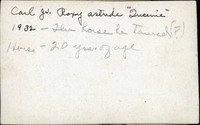 Carl Jr. Roxy astride "Queenie"
1932 - The horse he tamed (?)
Horse - 20 yrs of age